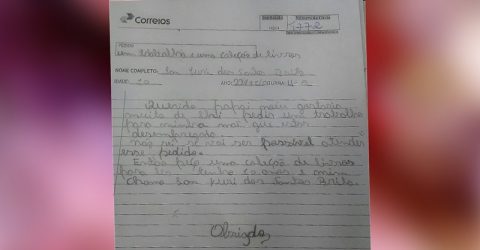 Correios
K772
PEDIDO:
um trabalho e uma coleção de livros
NOME COMPLETO: Iuri dos Santos
IDADE: 10
Querido papai noel gostaria
muito de lhe pedir um trabalho
para minha mãe que está
desempregada.
não sei se vai ser possível atender
esse pedido.
Então peço uma coleção de livros
para ler tenho 10 anos e
chamo Iuri dos Santos
Obrigado